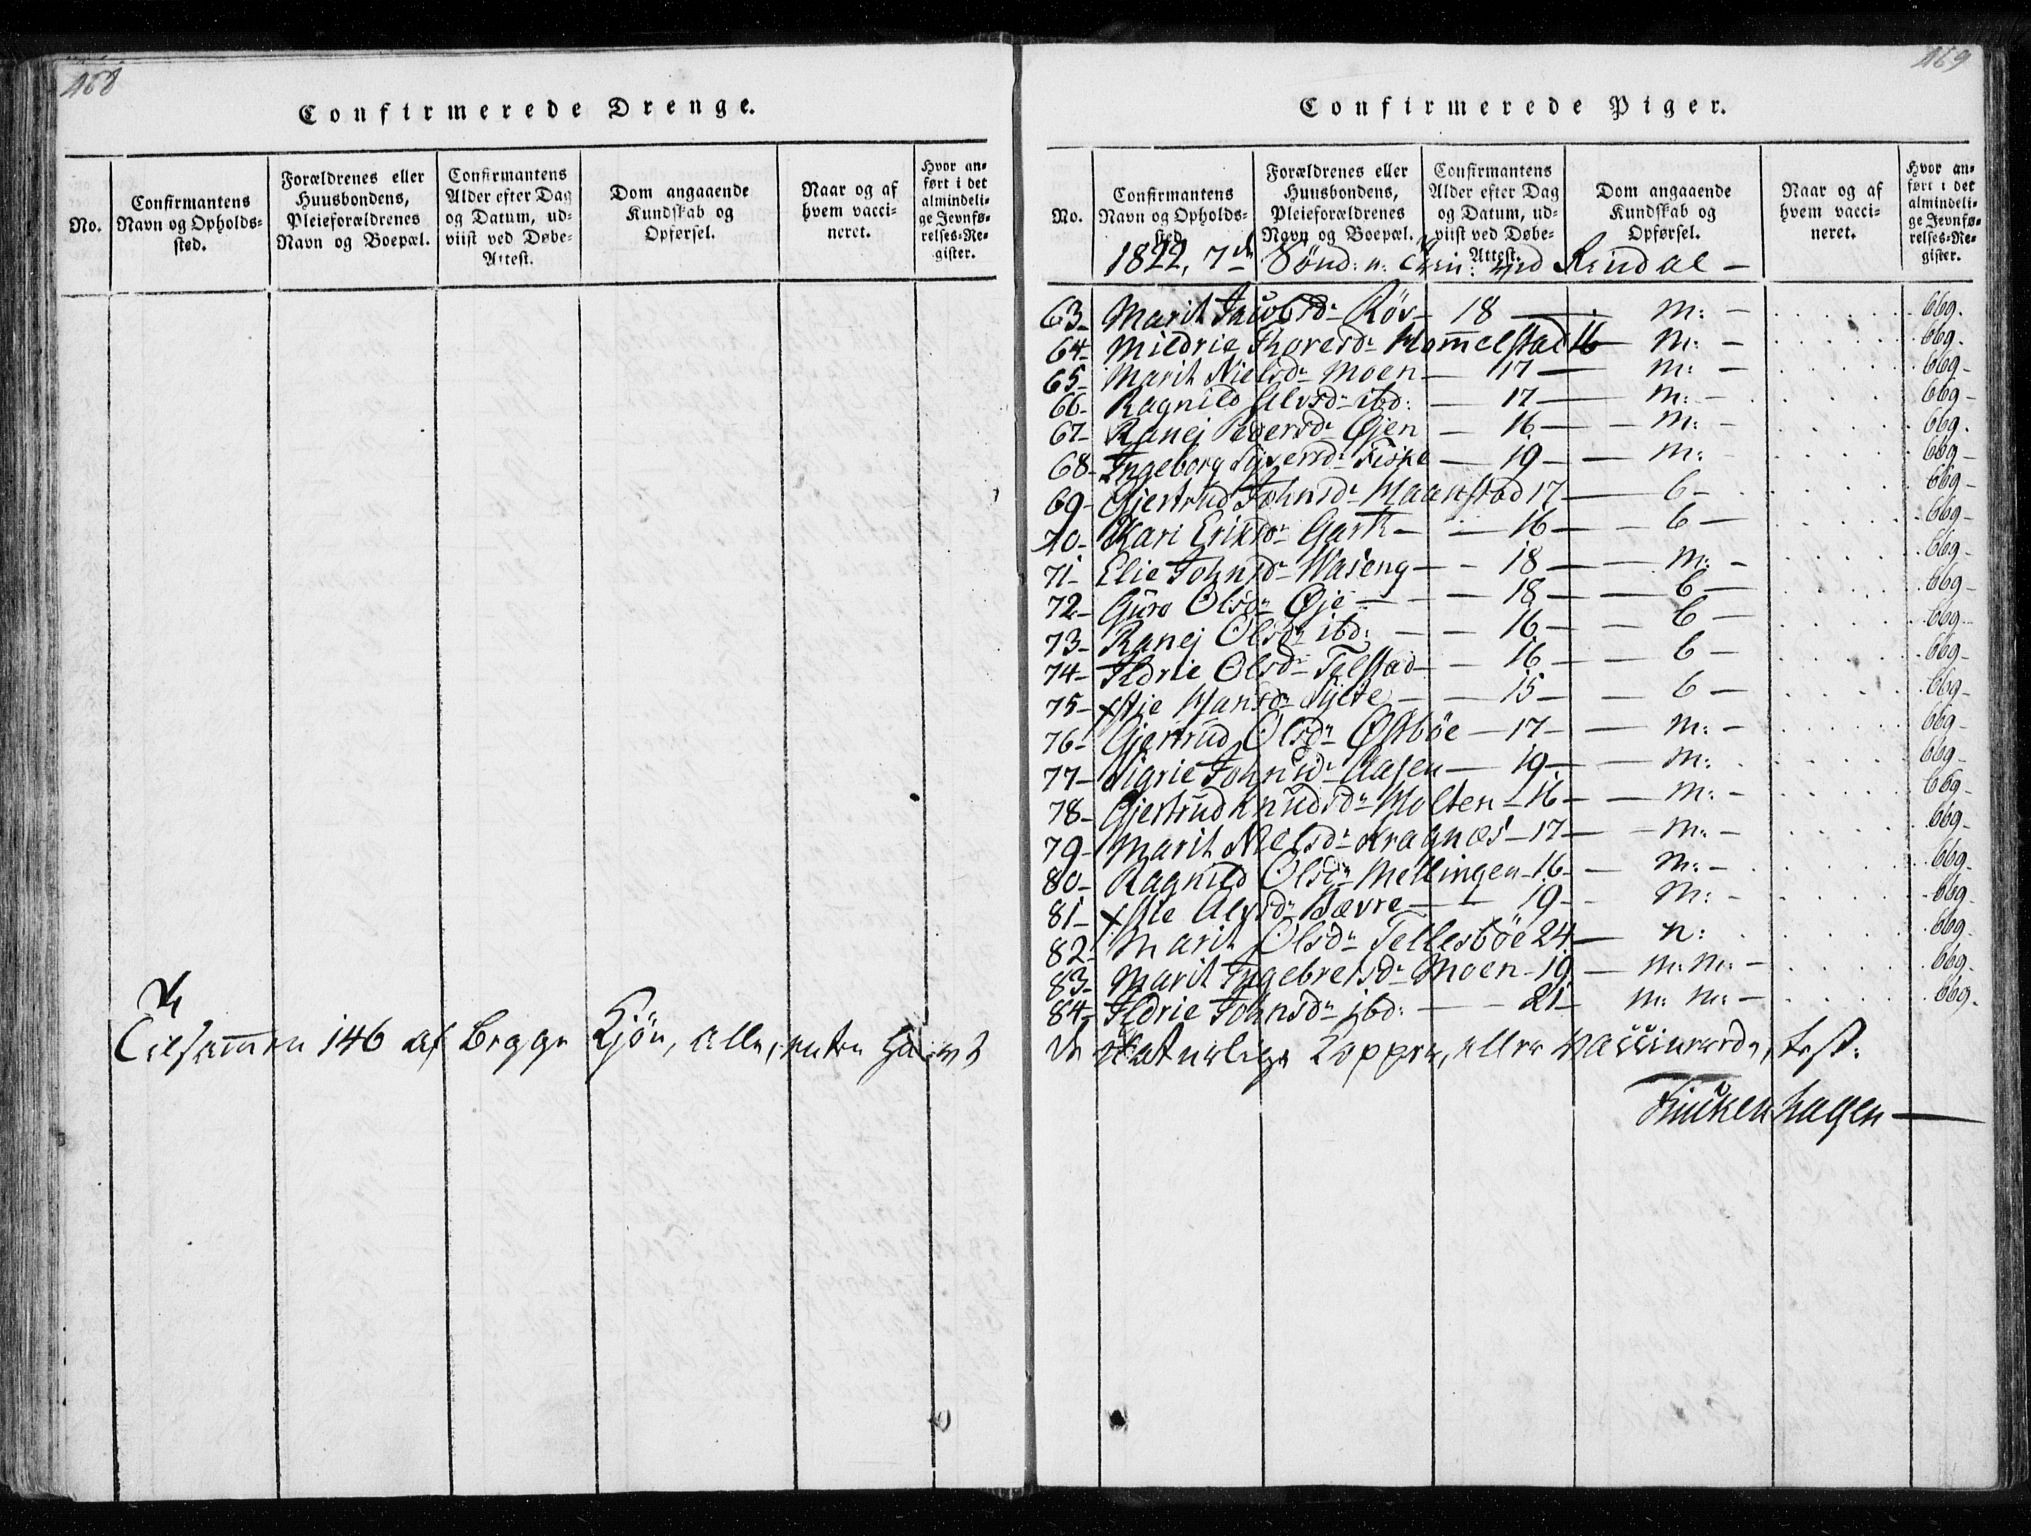 468
Confirmerede Drenge.
No.
Confirmantens Navn og Opholdssted.
Forældrenes eller Huusbondens, Pleieforældrenes Navn og Boepæl.
Confirmantens Alder efter Dag og Datum, udviist ved Døbe-Attest.
Dom angaaende Kundskab og Opførsel.
Naar og af hvem vaccineret.
Hvor anført i det almindelige Jevnførelses-Register.
Tilsammen 146 af begge Kjön, alle, uden
469
Confirmerede Piger.
No.
Confirmantens Navn og Opholdssted.
Forældrenes eller Huusbondens, Pleieforældrenes Navn og Boepæl.
Confirmantens Alder efter Dag og Datum, udviist ved Døbe-Attest.
Dom angaaende Kundskab og Opførsel.
Naar og af hvem vaccineret.
Hvor anført i det almindelige Jevnførelses-Register.
1822, 7de Sönd: ved Rindal -
63- Marit Jacobsdr Röv- 18 - m: - 669.
64- Mildrie Thoresdr Hommelstad 16 - m: - 669.
65- Marit Nielsdr Moen - 17 - m: - 669-
66- Ragnild Alvsdr ibd: - 17 - m: - 669-
67- Ranej Pedersdr Øjen - 16 - m: - 669.
68- Ingeborg Siversdr Fiske - 19 - m: 669-
69- Gjertrud Johnsdr Maanstad 17 - 6- 669-
70- Kari Eriksdr Garte - 16 - 6 - 669-
71- Elie Johnsdr Waseng - 18 - m: - 669-
72- Guro Olsdr Øje - 18 - 6 - 669-
73- Ranej Olsdr ibd: - 16 - 6 - 669-
74- Ildrie Olsdr Tilstad - 16 - 6 - 669-
75- Hansdr - 15 - 6 - 669-
76- Gjertrud Olsdr Østböe - 17 - m: - 669-
77- Sigrie Johnsdr Aasen - 19 - m: 669-
78- Gjertrud Knudsdr Holten - 16 - m: - 669-
79- Marit Nielsdr Kragnæs - 17 - m: - 669-
80- Ragnild Olsdr Mellingen - 16 - m: - 669-
81- Alvsdr Bævre - 19 - m: - 669-
82- Marit Olsdr Tellesböe 24 - n: 669-
83- Marit Ingebretsdr Moen - 19 - m: m: - 669-
84- Ildrie Johnsdr ibd: - 21 - m: m: - 669.
naturlige Kopper, ellers vaccinerede, test:
Finckenhagen